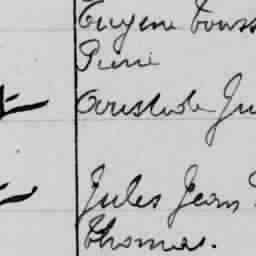 Eugene Touss
Pierre
Aristide Ju
Jules Jean
Thomas.